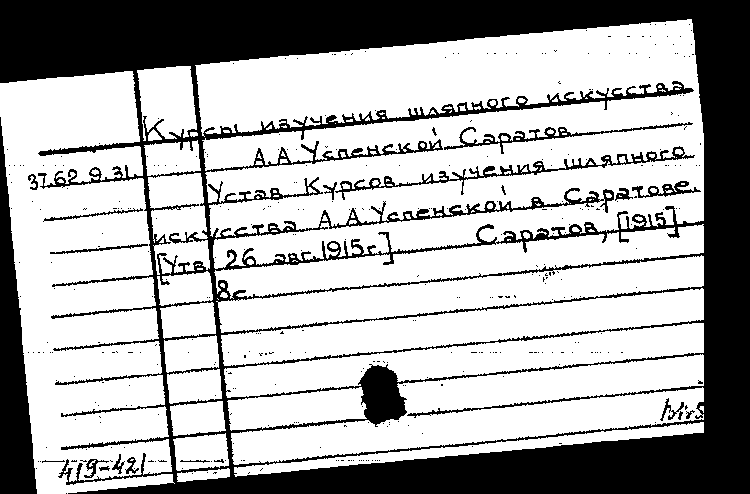 Курсы изучения шляпного искусства
А.А. Успенской Саратов
37.62.9.31.
Устав Курсов изучения шляпного
искусства А.А. Успенской в Саратове.
[Утв. 26 авг. 1915г.] Саратов, [1915].
8с.
419-421